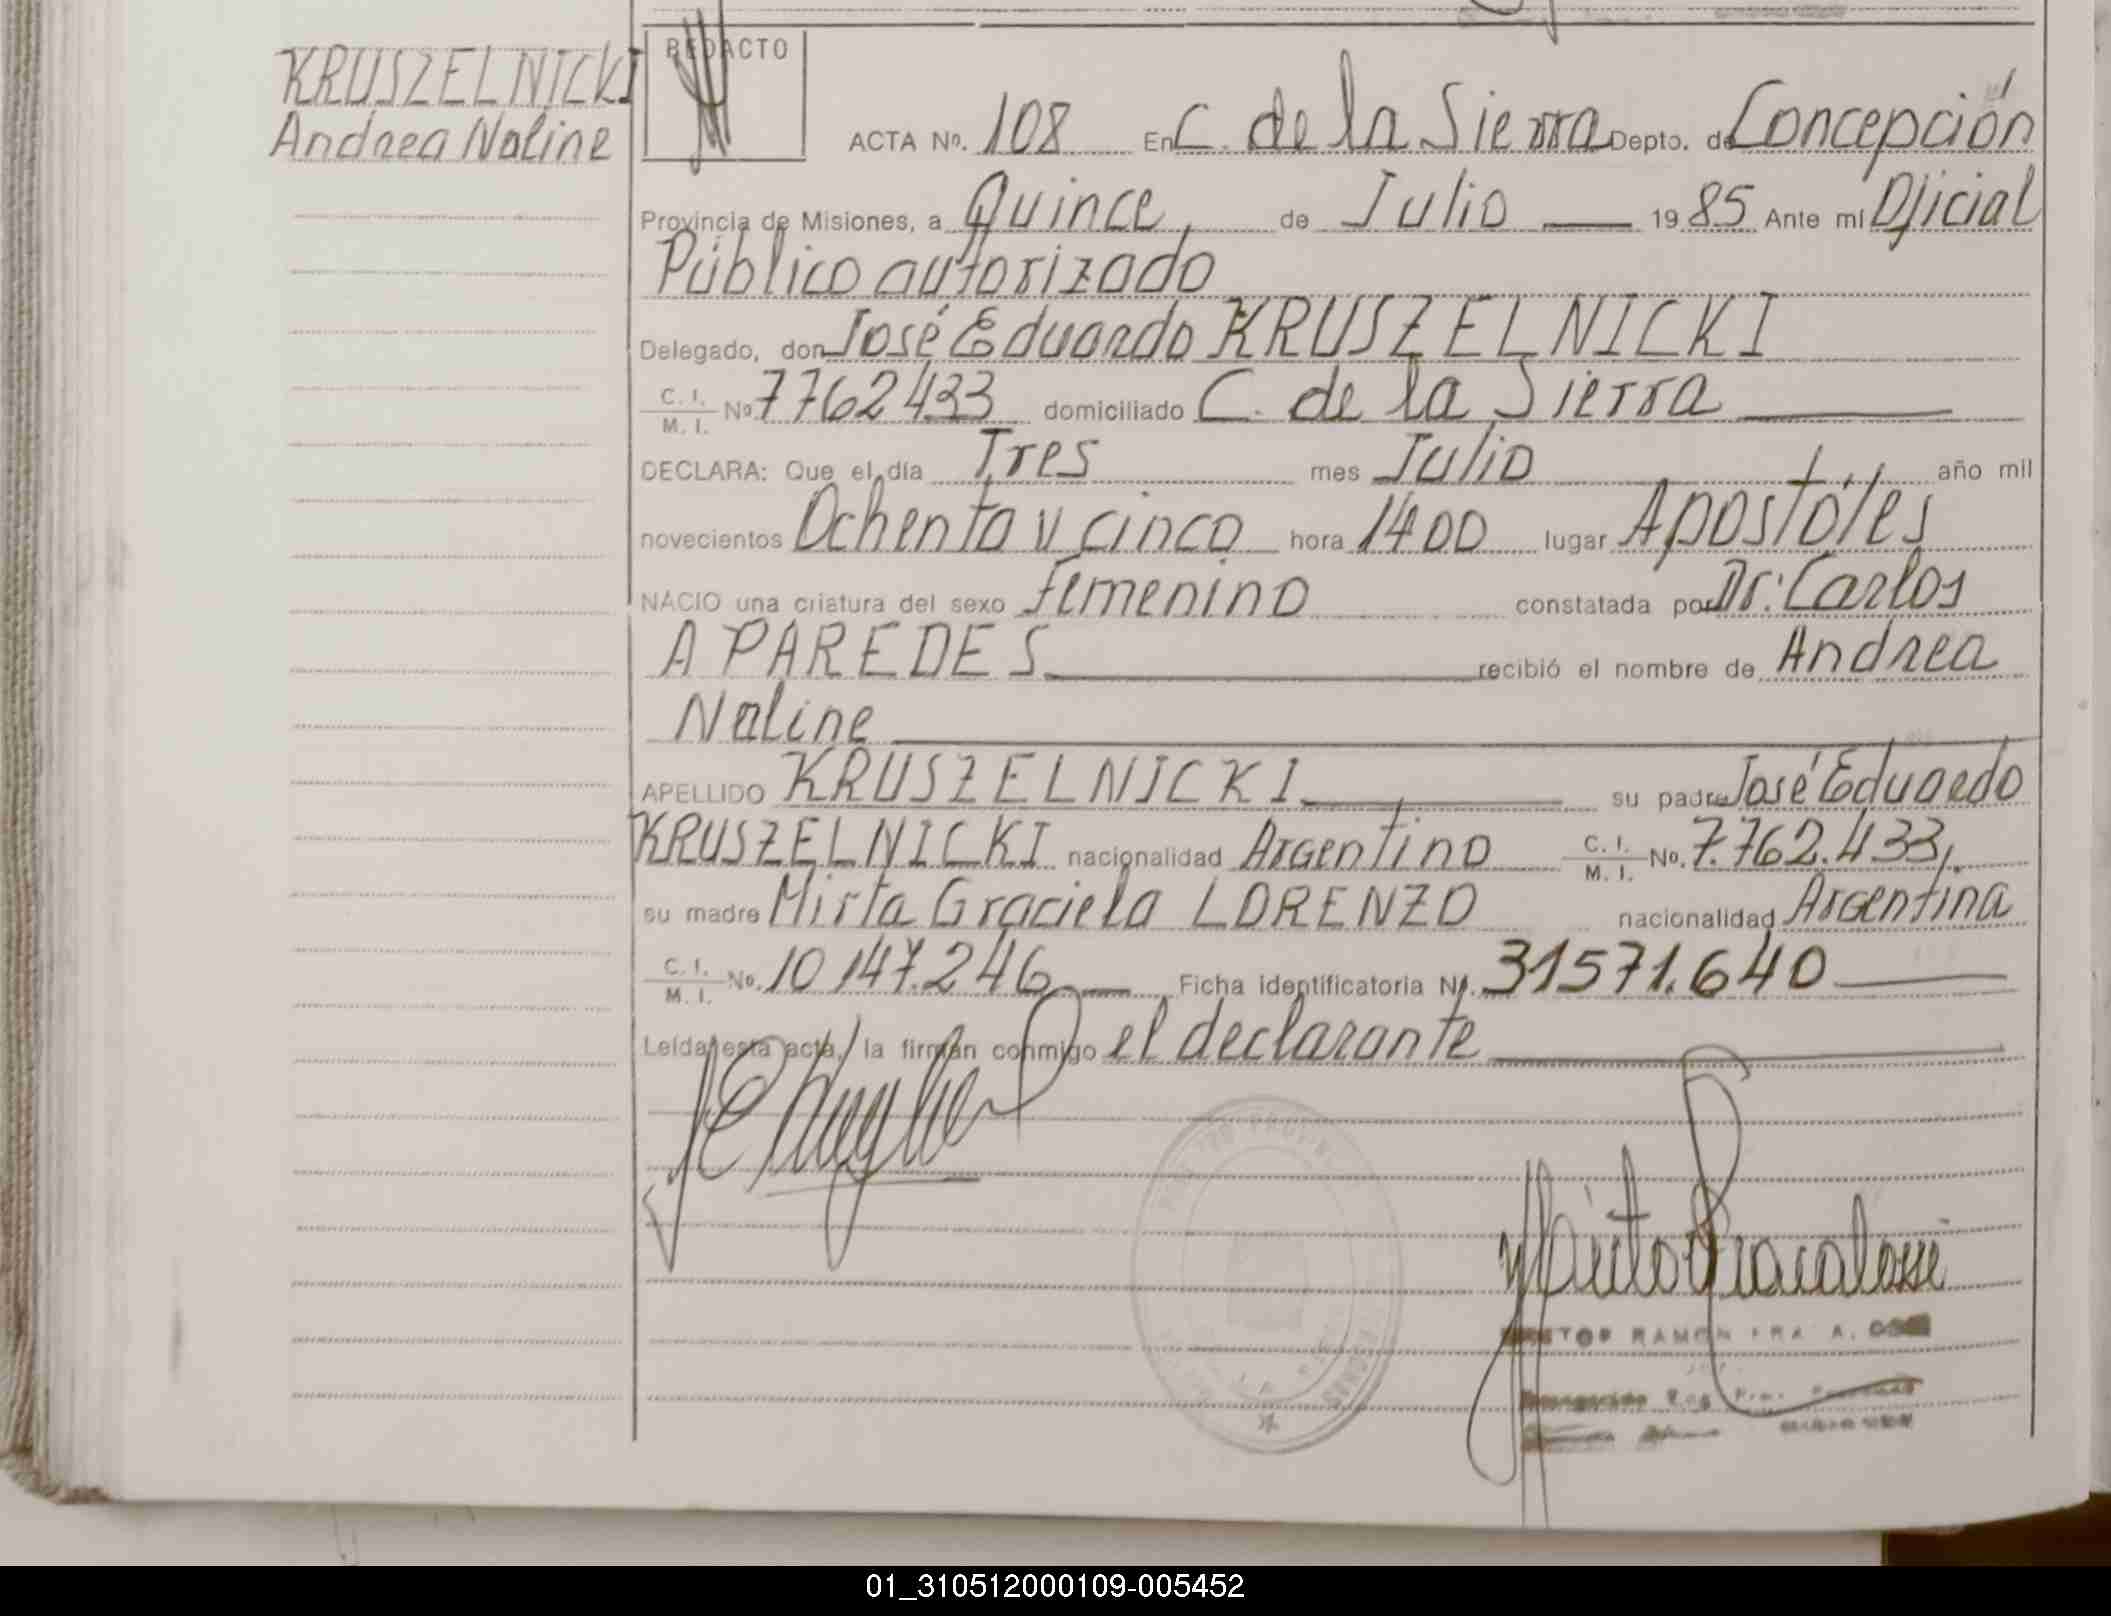 KRUSZELNICKI
Andrea Naline
REDACTO
ACTA No. 108 En C. de la Sierra Depto. de Concepción
Provincia de Misiones, a Quince de Julio 19 85 Ante mí Oficial
Público autorizado
Delegado, don José Eduardo KRUSZELNICKI
C. I. / M. I. No. 7762433 domiciliado C. de la Sierra
DECLARA: Que el día Tres mes Julio año mil
novecientos Ochenta y cinco hora 1400 lugar Apóstoles
NACIO una criatura del sexo femenino constatada por Dr. Carlos
A PAREDES recibió el nombre de Andrea
Naline
APELLIDO KRUSZELNICKI su padre José Eduardo
KRUSZELNICKI nacionalidad Argentino C. I. / M. I. No. 7.762.433
su madre Mirta Graciela LORENZO nacionalidad Argentina
C. I. / M. I. No. 10147.246 Ficha identificatoria No. 31571.640
Leída esta acta, la firman conmigo el declarante
RAMON
01_310512000109-005452